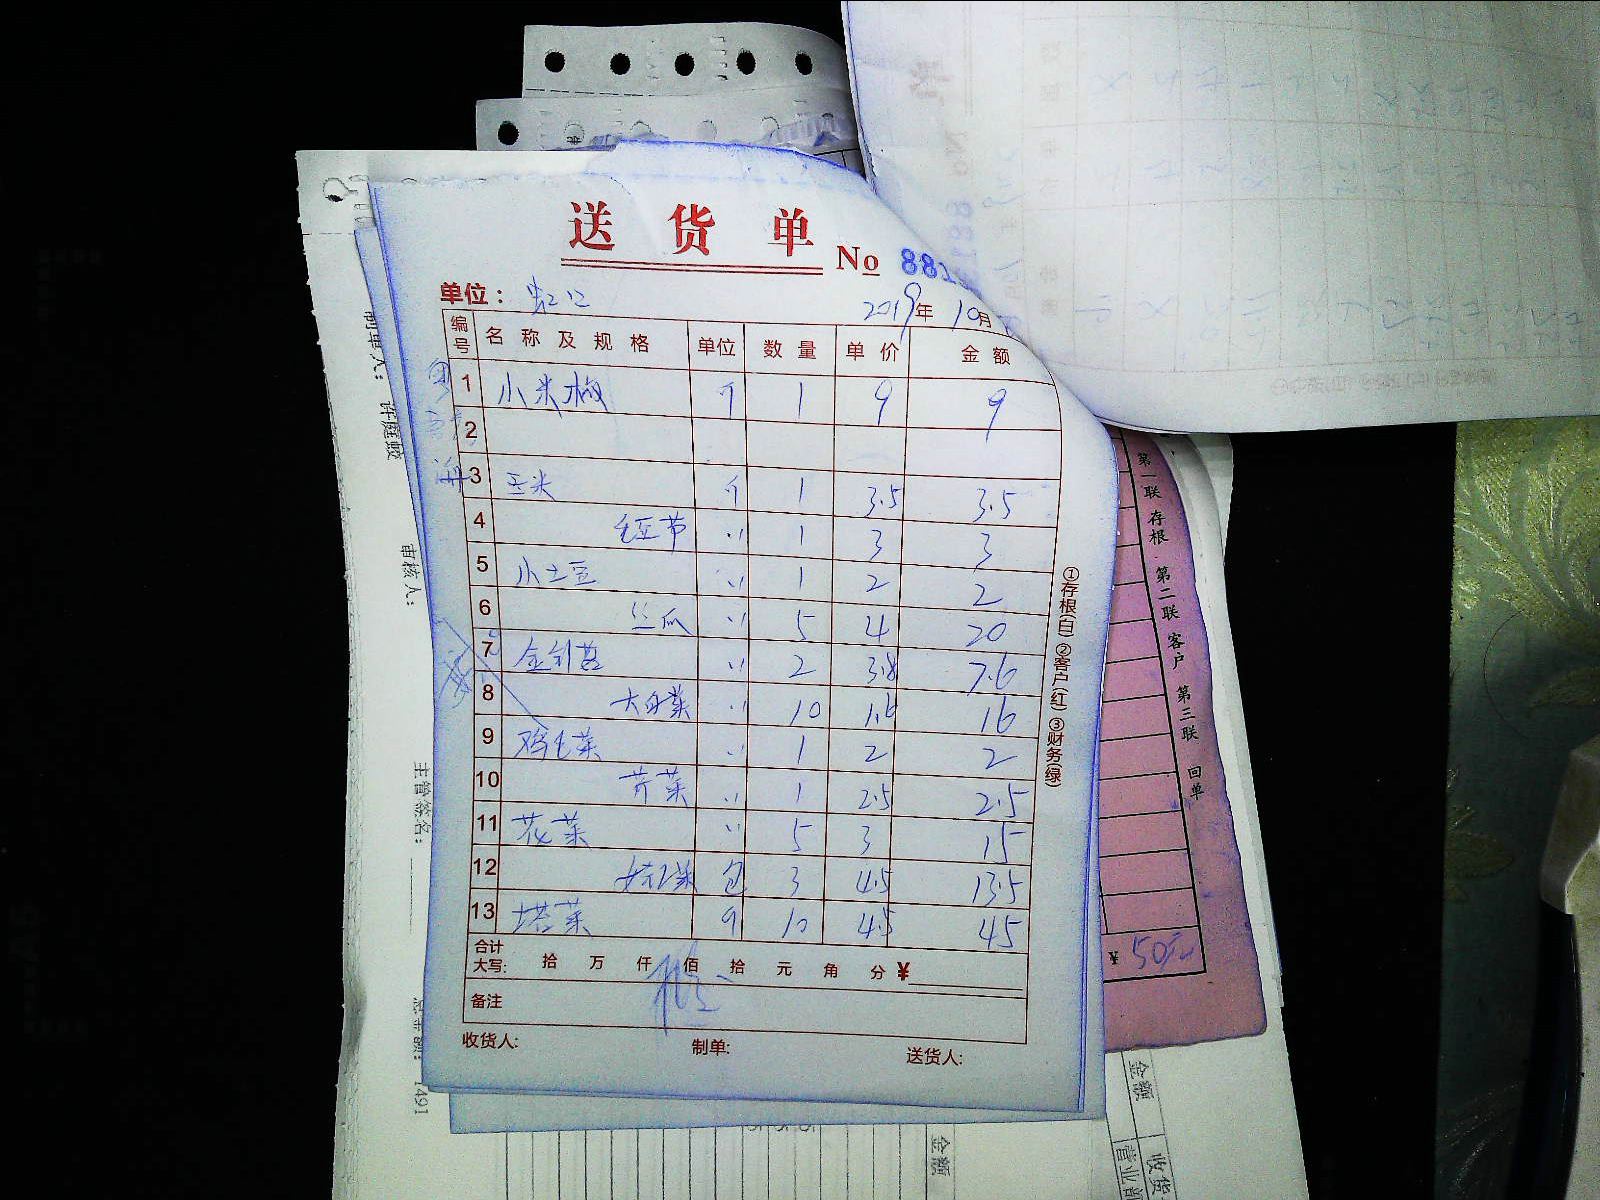 送 货 单 No 881
单位： 虹口 2019年 10月
编号 名 称 及 规 格 单位 数 量 单 价 金 额
1 小米椒 斤 1 9 9
2
3 玉米 斤 1 3.5 3.5
4 毛豆节 〃 1 3 3
5 小土豆 〃 1 2 2
6 丝瓜 〃 5 4 20
7 金针菇 〃 2 3.8 7.6
8 大白菜 〃 10 1.6 16
9 鸡毛菜 〃 1 2 2
10 芹菜 〃 1 2.5 2.5
11 花菜 〃 5 3 15
12 包 3 4.5 13.5
13 塔菜 斤 10 4.5 45
合计
大写: 拾 万 仟 佰 拾 元 角 分 ¥
备注
收货人: 制单: 送货人:
①存根(白) ②客户(红) ③财务(绿)
第一联 存根 第二联 客户 第三联 回单
¥ 50元
制单人: 许庭蛟
审核人:
主管签名:
总金额: 1491
金额
金额
收货
营业部